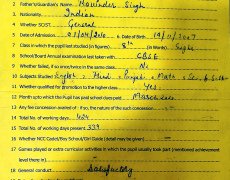 Father's/Guardian's Name Ravinder Singh
3. Nationality Indian
4. Whether SC/ST General
5. Date of Admission 6. Date of Birth
7. Class in which the pupil last studied (in figures) 8th (in words)
8. School/Board Annual examination last taken with CBSE
9. Whether failed, if so once/twice in the same class No
10. Subjects Studied
11. Whether qualified for promotion to the higher class Yes
12. Month upto which the Pupil has paid school dues paid March
13. Any fee concession availed of: if so, the nature of the such concession
14. Total No. of working days
15. Total No. of working days present 333
16. Whether NCC Cadet/Boy Scout/Girl Guide (detail may be given)
17. Games played or extra curricular activities in which the pupil usually took part (mentioned achievement
level there in)
18. General conduct Satisfactory